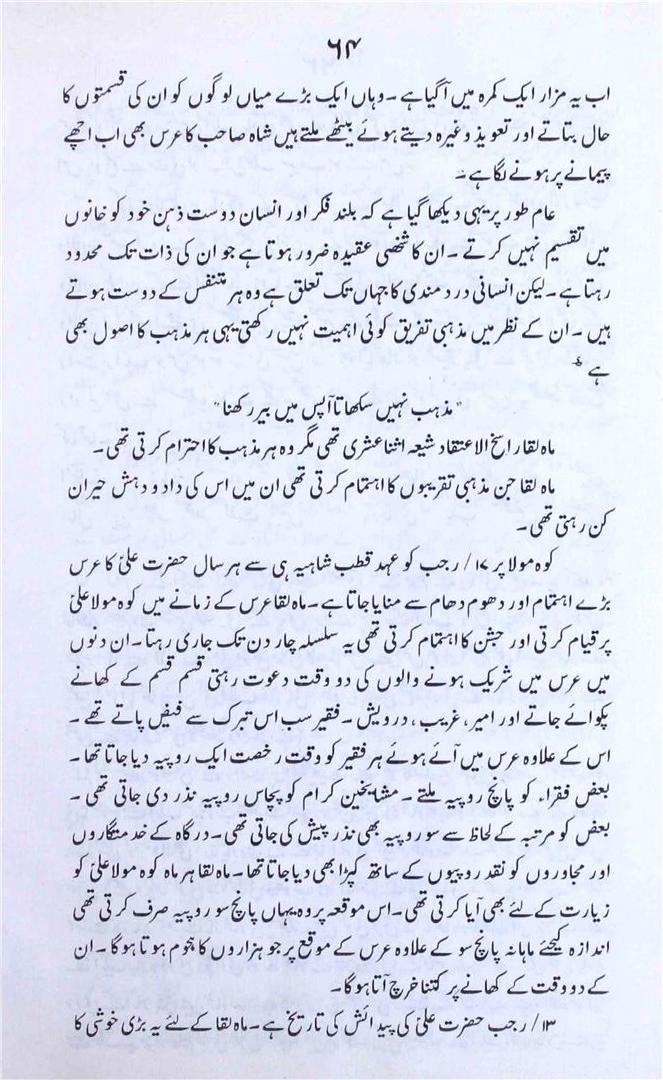 ۶۴
اب یہ مزار ایک کمرہ میں آگیا ہے۔ وہاں ایک بڑے میاں لوگوں کو ان کی قسمتوں کا
حال بتاتے اور تعویذ وغیرہ دیتے ہوئے بیٹھے ملتے ہیں شاہ صاحب کا عرس بھی اب اچھے
پیمانے پر ہونے لگا ہے۔
عام طور پر یہی دیکھا گیا ہے کہ بلند فکر اور انسان دوست ذہن خود کو خانوں
میں تقسیم نہیں کرتے۔ ان کا شخصی عقیدہ ضرور ہوتا ہے جو ان کی ذات تک محدود
رہتا ہے۔ لیکن انسانی دردمندی کا جہاں تک تعلق ہے وہ ہر متنفس کے دوست ہوتے
ہیں۔ ان کے نظر میں مذہبی تفریق کوئی اہمیت نہیں رکھتی یہی ہر مذہب کا اصول بھی
ہے
"مذہب نہیں سکھاتا آپس میں بیر رکھنا"
ماہ لقا راسخ الاعتقاد شیعہ اثنا عشری تھی مگر وہ ہر مذہب کا احترام کرتی تھی۔
ماہ لقا جن مذہبی تقریبوں کا اہتمام کرتی تھی ان میں اس کی داد و دہش حیران
کن رہتی تھی۔
کوہ مولا پر ۱۷/ رجب کو عہد قطب شاہیہ ہی سے ہر سال حضرت علیؑ کا عرس
بڑے اہتمام اور دھوم دھام سے منایا جاتا ہے۔ ماہ لقا عرس کے زمانے میں کوہ مولا علیؑ
پر قیام کرتی اور جشن کا اہتمام کرتی تھی یہ سلسلہ چار دن تک جاری رہتا۔ ان دنوں
میں عرس میں شریک ہونے والوں کی دو وقت دعوت رہتی قسم قسم کے کھانے
پکوائے جاتے اور امیر، غریب، درویش۔ فقیر سب اس تبرک سے فیض پاتے تھے۔
اس کے علاوہ عرس میں آئے ہوئے ہر فقیر کو وقت رخصت ایک روپیہ دیا جاتا تھا۔
بعض فقراء کو پانچ روپیہ ملتے۔ مشایخین کرام کو پچاس روپیہ نذر دی جاتی تھی۔
بعض کو مرتبہ کے لحاظ سے سو روپیہ بھی نذر پیش کی جاتی تھی۔ درگاہ کے خدمتگاروں
اور مجاوروں کو نقد روپیوں کے ساتھ کپڑا بھی دیا جاتا تھا۔ ماہ لقا ہر ماہ کوہ مولا علیؑ کو
زیارت کے لئے بھی آیا کرتی تھی۔ اس موقعہ پر وہ یہاں پانچ سو روپیہ صرف کرتی تھی
اندازہ کیجئے ماہانہ پانچ سو کے علاوہ عرس کے موقع پر جو ہزاروں کا ہجوم ہوتا ہوگا۔ ان
کے دو وقت کے کھانے پر کتنا خرچ آتا ہوگا۔
۱۳/ رجب حضرت علیؑ کی پیدائش کی تاریخ ہے۔ ماہ لقا کے لئے یہ بڑی خوشی کا